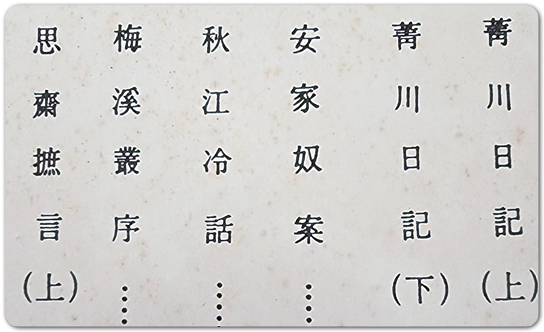 菁川日記(上)
菁川日記(下)
安家奴案……
秋江冷話……
梅溪叢序……
思齋摭言(上)